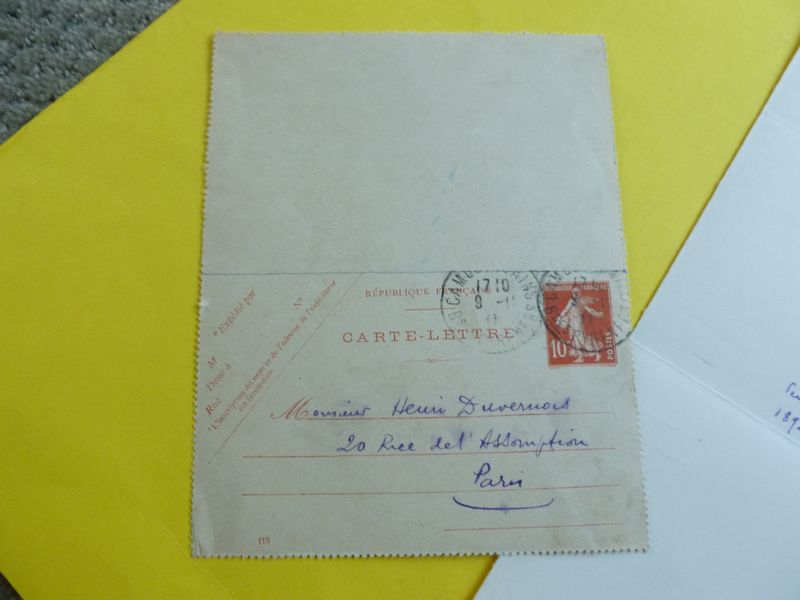 RÉPUBLIQUE FRANÇAISE
CARTE-LETTRE
* Expédié par
M
Demt à
Rue
No
*L'inscription du nom et de l'adresse de l'expéditeur
est facultative.
17 10
9 -11
RÉPUBLIQUE FRANÇAISE
10
POSTES
Monsieur Henri Duvernois
20 Rue de l'Assomption
Paris
119
189